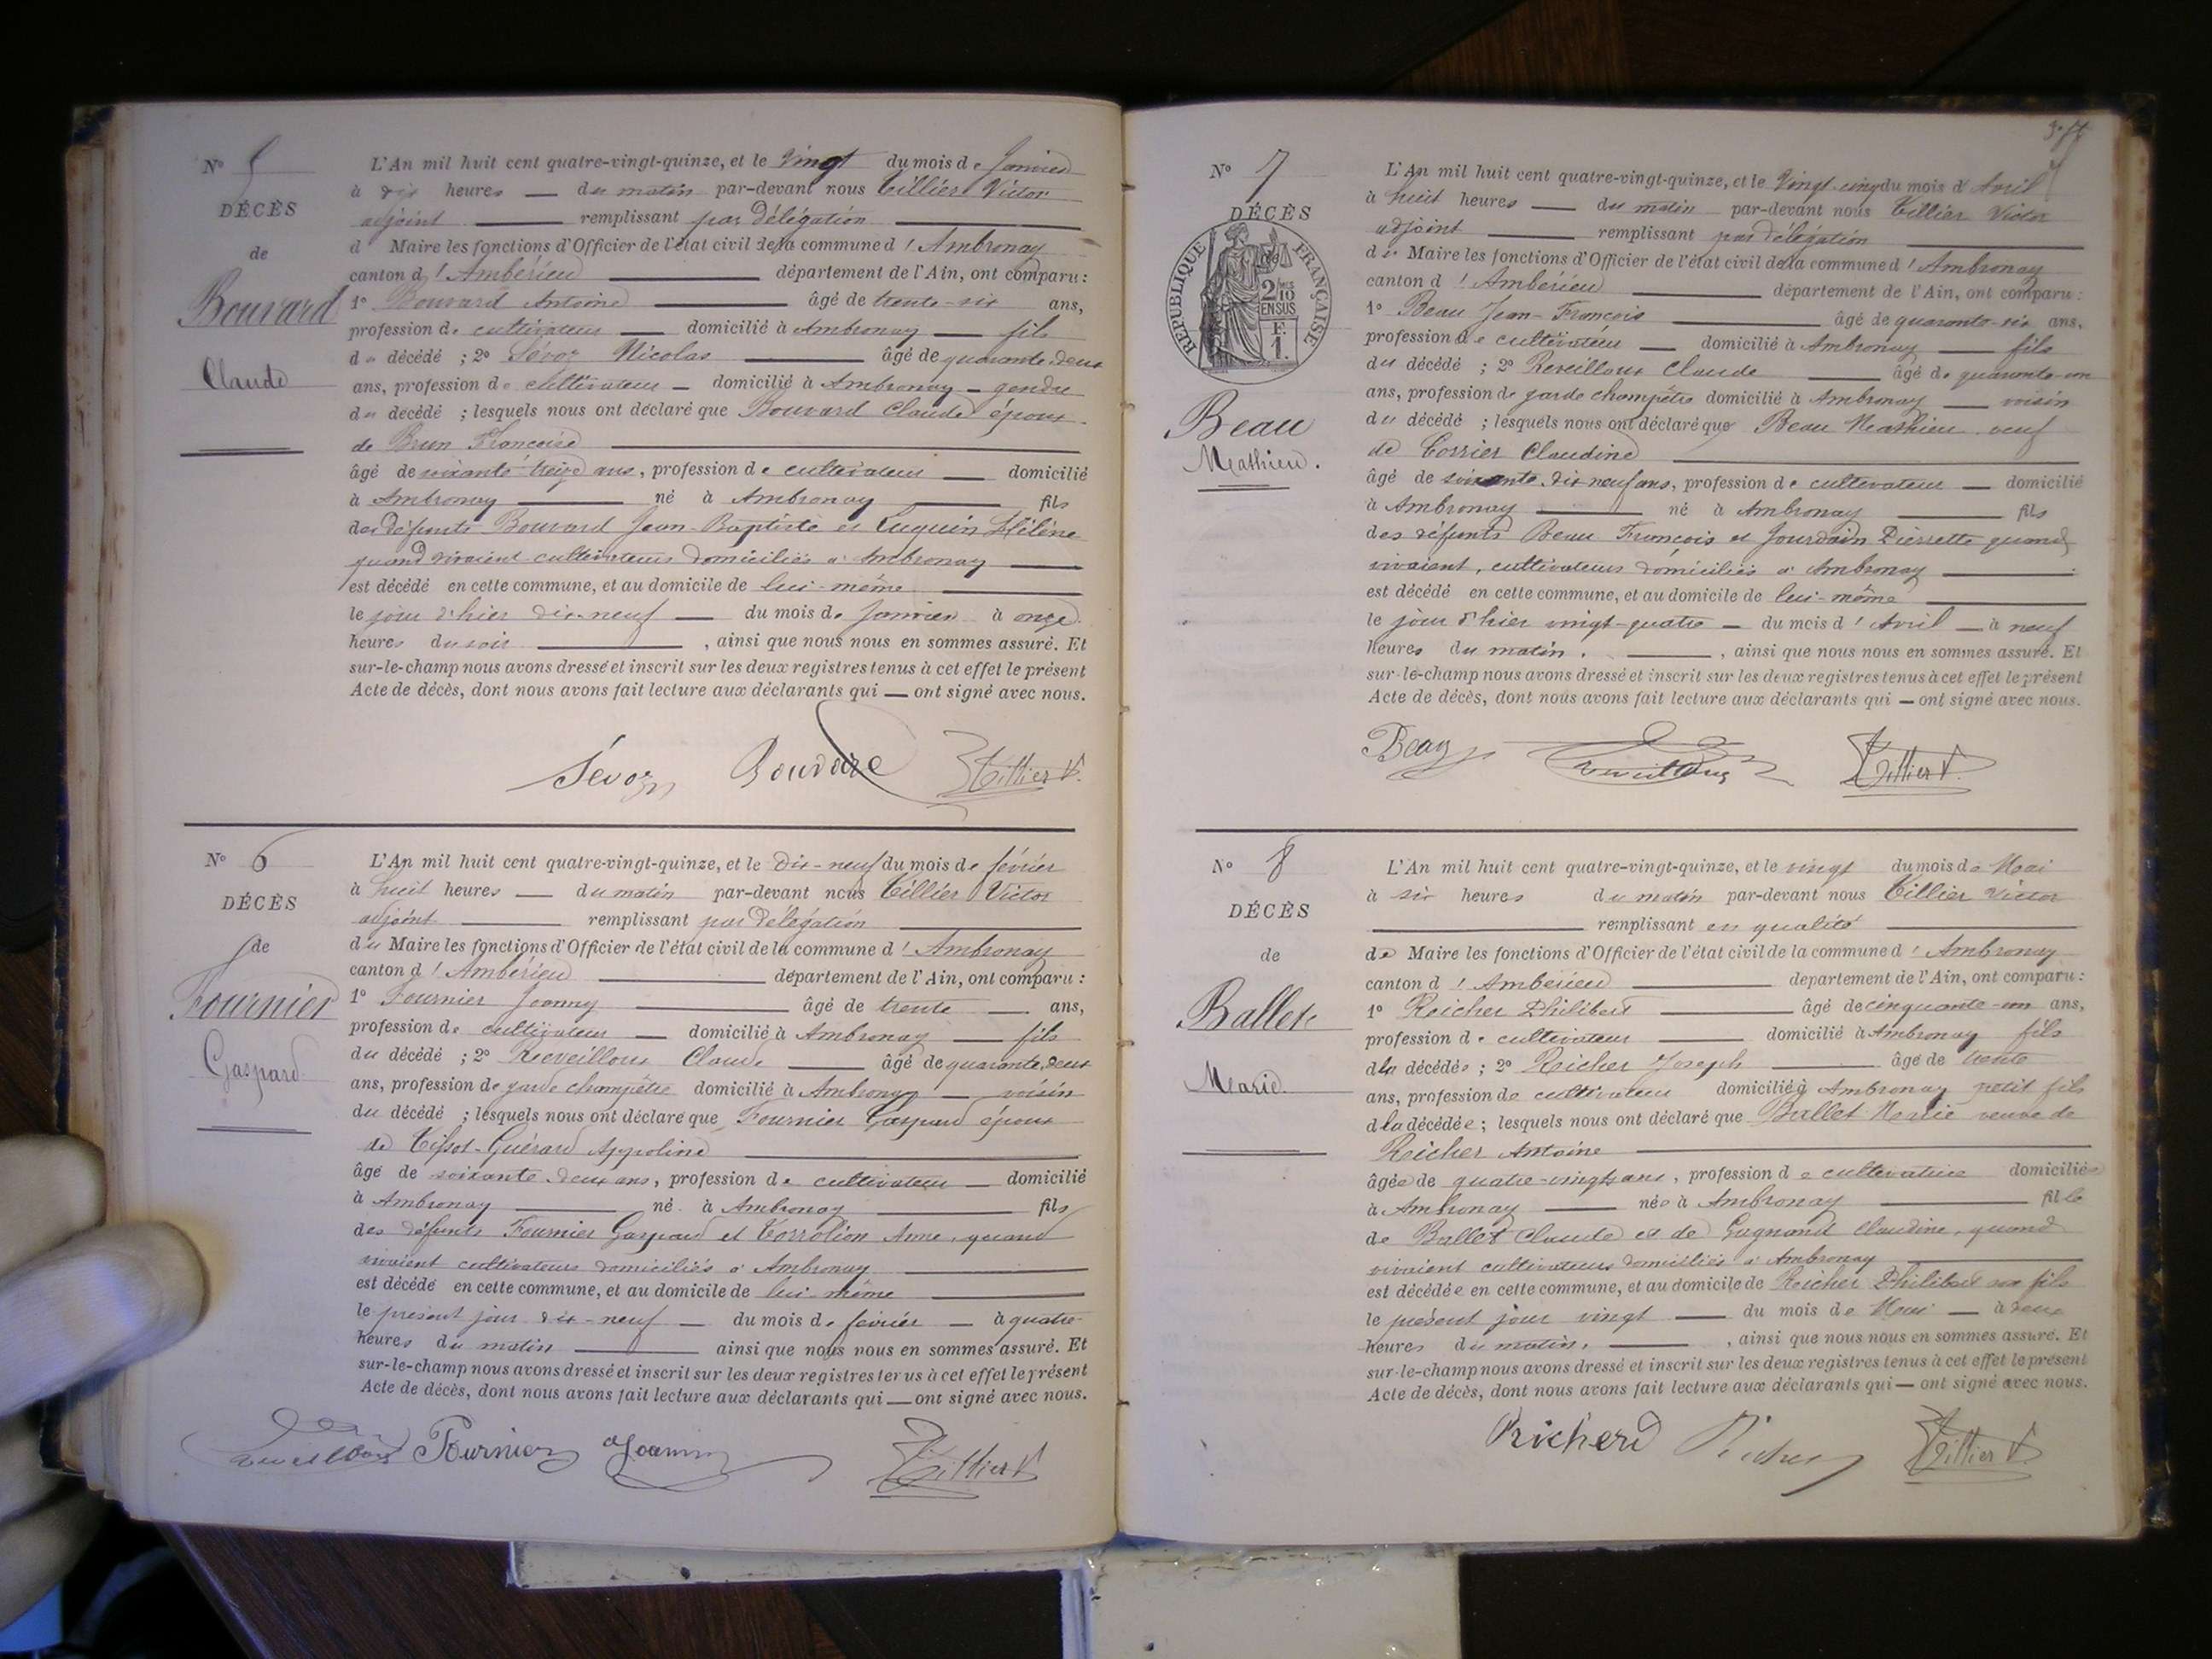 N° 5
DÉCÈS
de
Bouvard
Claude
L'An mil huit cent quatre-vingt-quinze, et le Vingt du mois de Janvier
à dix heures — du matin par-devant nous Tillier Victor
adjoint — remplissant par délégation
d Maire les fonctions d'Officier de l'état civil de la commune d' Ambronay
canton d' Ambérieu — département de l'Ain, ont comparu :
1° Bouvard Antoine — âgé de trente-six ans,
profession de cultivateur — domicilié à Ambronay — fils
du décédé ; 2° Sévoz Nicolas — âgé de quarante-deux
ans, profession de cultivateur — domicilié à Ambronay — gendre
du décédé ; lesquels nous ont déclaré que Bouvard Claude époux
de Brun Françoise
âgé de soixante treize ans, profession de cultivateur — domicilié
à Ambronay — né à Ambronay — fils
des défunts Bouvard Jean-Baptiste et Luquin Hélène
quand vivaient cultivateurs domiciliés à Ambronay —
est décédé en cette commune, et au domicile de lui-même
le jour d'hier dix-neuf — du mois de Janvier à onze
heures du soir — , ainsi que nous nous en sommes assuré. Et
sur-le-champ nous avons dressé et inscrit sur les deux registres tenus à cet effet le présent
Acte de décès, dont nous avons fait lecture aux déclarants qui — ont signé avec nous.
Sévoz Tillier V.
N° 6
DÉCÈS
de
Fournier
Gaspard
L'An mil huit cent quatre-vingt-quinze, et le Dix-neuf du mois de février
à huit heures — du matin par-devant nous Tillier Victor
adjoint — remplissant par délégation
du Maire les fonctions d'Officier de l'état civil de la commune d' Ambronay
canton d' Ambérieu — département de l'Ain, ont comparu :
1° Fournier Joanny — âgé de trente — ans,
profession de cultivateur — domicilié à Ambronay — fils
du décédé ; 2° Reveilloux Claude — âgé de quarante, deux
ans, profession de garde champêtre domicilié à Ambronay — voisin
du décédé ; lesquels nous ont déclaré que Fournier Gaspard époux
de Tissot-Guérard Appoline
âgé de soixante-deux ans, profession de cultivateur — domicilié
à Ambronay — né à Ambronay — fils
des défunts Fournier Gaspard et Anne, quand
vivaient cultivateurs domiciliés à Ambronay
est décédé en cette commune, et au domicile de lui-même
le présent jour dix-neuf — du mois de février — à quatre
heures du matin — ainsi que nous nous en sommes assuré. Et
sur-le-champ nous avons dressé et inscrit sur les deux registres tenus à cet effet le présent
Acte de décès, dont nous avons fait lecture aux déclarants qui — ont signé avec nous.
Fournier Tillier V.
N° 7
DÉCÈS
RÉPUBLIQUE FRANÇAISE
2/10
EN SUS
F.
1.
Beau
Mathieu.
L'An mil huit cent quatre-vingt-quinze, et le Vingt-cinq du mois d' Avril
à huit heures — du matin par-devant nous Tillier Victor
adjoint — remplissant par délégation
du Maire les fonctions d'Officier de l'état civil de la commune d' Ambronay
canton d' Ambérieu — département de l'Ain, ont comparu :
1° Beau Jean-François — âgé de quarante-six ans,
profession de cultivateur — domicilié à Ambronay — fils
du décédé ; 2° Reveilloux Claude — âgé de quarante-un
ans, profession de garde champêtre domicilié à Ambronay — voisin
du décédé ; lesquels nous ont déclaré que Beau Mathieu veuf
de Claudine
âgé de soixante-dix-neuf ans, profession de cultivateur — domicilié
à Ambronay — né à Ambronay — fils
des défunts Beau François et Jourdain Pierrette quand
vivaient, cultivateurs domiciliés à Ambronay —
est décédé en cette commune, et au domicile de lui-même
le jour d'hier vingt-quatre — du mois d' Avril — à neuf
heures du matin. — , ainsi que nous nous en sommes assuré. Et
sur-le-champ nous avons dressé et inscrit sur les deux registres tenus à cet effet le présent
Acte de décès, dont nous avons fait lecture aux déclarants qui — ont signé avec nous.
Beau Tillier V.
N° 8
DÉCÈS
de
Ballet
Marie
L'An mil huit cent quatre-vingt-quinze, et le vingt du mois de Mai
à six heures du matin par-devant nous Tillier Victor
— remplissant en qualité
de Maire les fonctions d'Officier de l'état civil de la commune d' Ambronay
canton d' Ambérieu — département de l'Ain, ont comparu :
1° Reicher Philibert — âgé de cinquante-un ans,
profession de cultivateur — domicilié à Ambronay fils
d la décédée ; 2° Reicher Joseph — âgé de trente
ans, profession de cultivateur domicilié à Ambronay petit fils
d la décédée ; lesquels nous ont déclaré que Ballet Marie veuve de
Reicher Antoine
âgée de quatre-vingts ans, profession de cultivatrice domiciliée
à Ambronay — née à Ambronay — fille
de Ballet Claude et de Claudine, quand
vivaient cultivateurs domiciliés à Ambronay
est décédée en cette commune, et au domicile de Reicher Philibert son fils
le présent jour vingt — du mois de Mai — à deux
heures du matin. — , ainsi que nous nous en sommes assuré. Et
sur-le-champ nous avons dressé et inscrit sur les deux registres tenus à cet effet le présent
Acte de décès, dont nous avons fait lecture aux déclarants qui — ont signé avec nous.
Richerd Richer Tillier V.